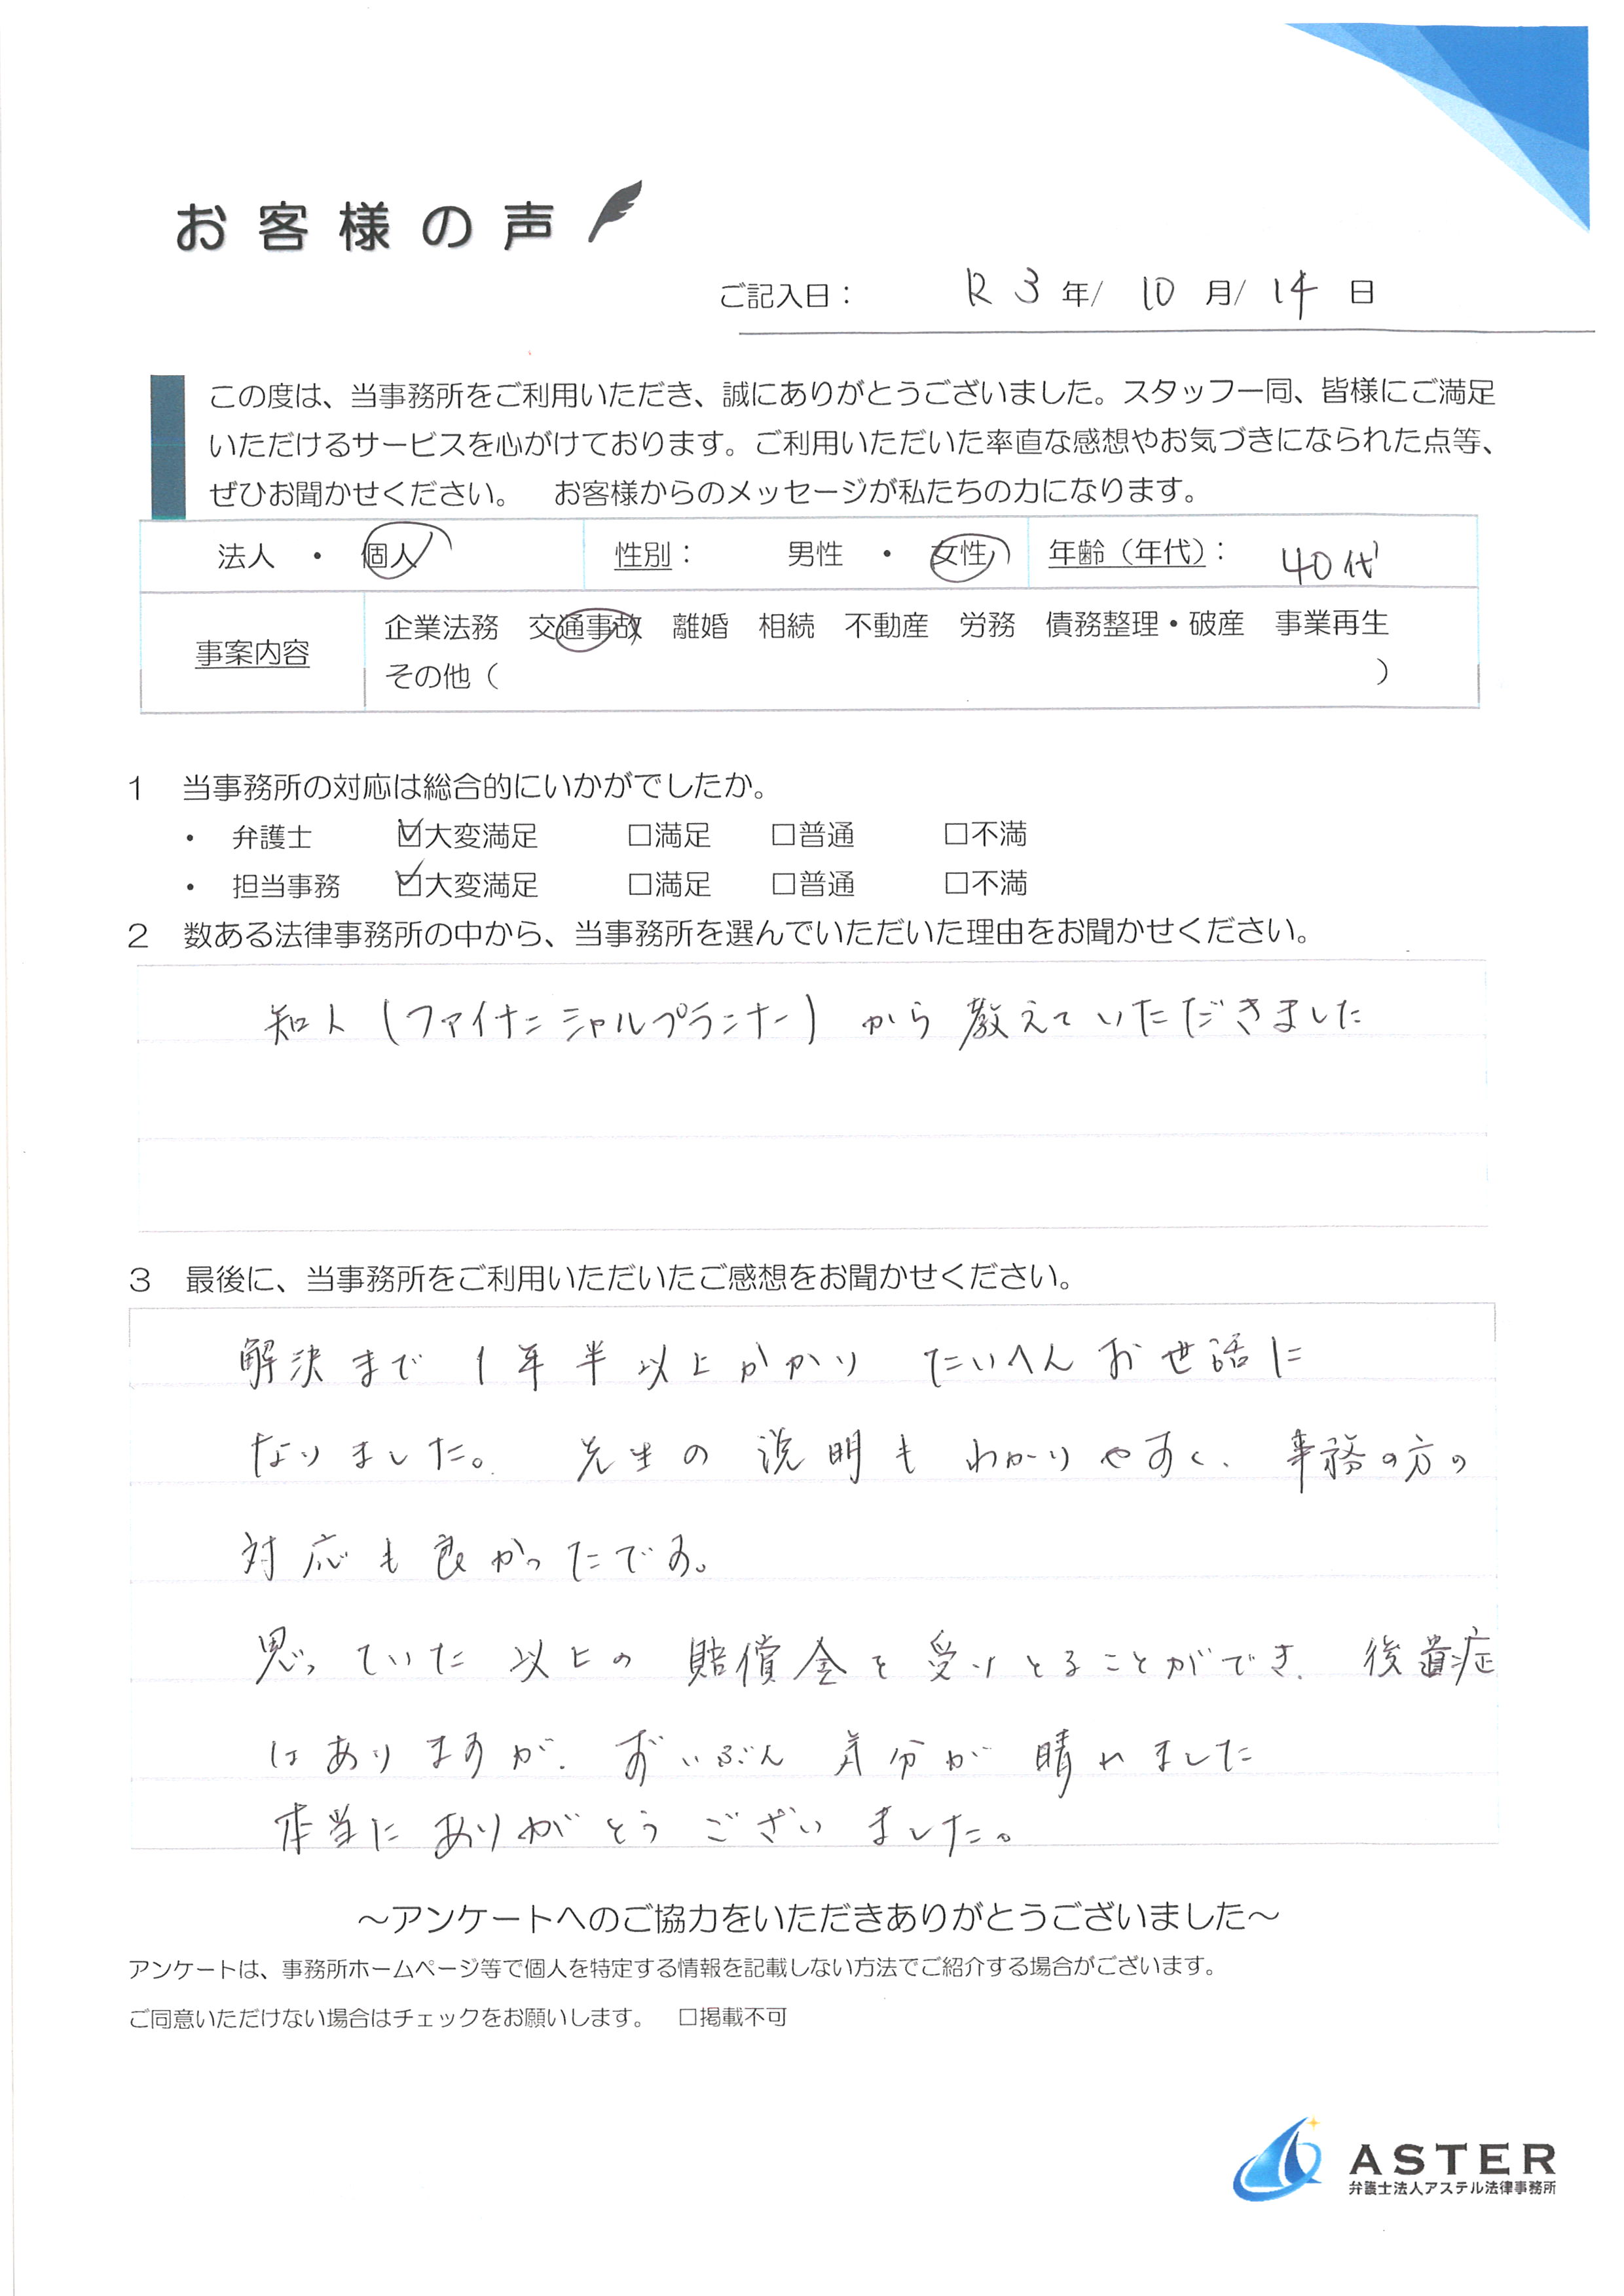 お客様の声
ご記入日： R3年/ 10月/ 14日
この度は、当事務所をご利用いただき、誠にありがとうございました。スタッフ一同、皆様にご満足
いただけるサービスを心がけております。ご利用いただいた率直な感想やお気づきになられた点等、
ぜひお聞かせください。　お客様からのメッセージが私たちの力になります。
法人 ・ 個人 性別： 男性 ・ 女性 年齢（年代）： 40代
事案内容 企業法務 交通事故 離婚 相続 不動産 労務 債務整理・破産 事業再生
その他（ ）
1　当事務所の対応は総合的にいかがでしたか。
・ 弁護士 ☑大変満足 □満足 □普通 □不満
・ 担当事務 ☑大変満足 □満足 □普通 □不満
2　数ある法律事務所の中から、当事務所を選んでいただいた理由をお聞かせください。
知人（ファイナンシャルプランナー）から教えていただきました
3　最後に、当事務所をご利用いただいたご感想をお聞かせください。
解決まで1年半以上かかり たいへんお世話に
なりました。先生の説明もわかりやすく、事務の方の
対応も良かったです。
思っていた以上の賠償金を受けとることができ、後遺症
はありますが、ずいぶん気分が晴れました
本当にありがとうございました。
～アンケートへのご協力をいただきありがとうございました～
アンケートは、事務所ホームページ等で個人を特定する情報を記載しない方法でご紹介する場合がございます。
ご同意いただけない場合はチェックをお願いします。　□掲載不可
ASTER
弁護士法人アステル法律事務所